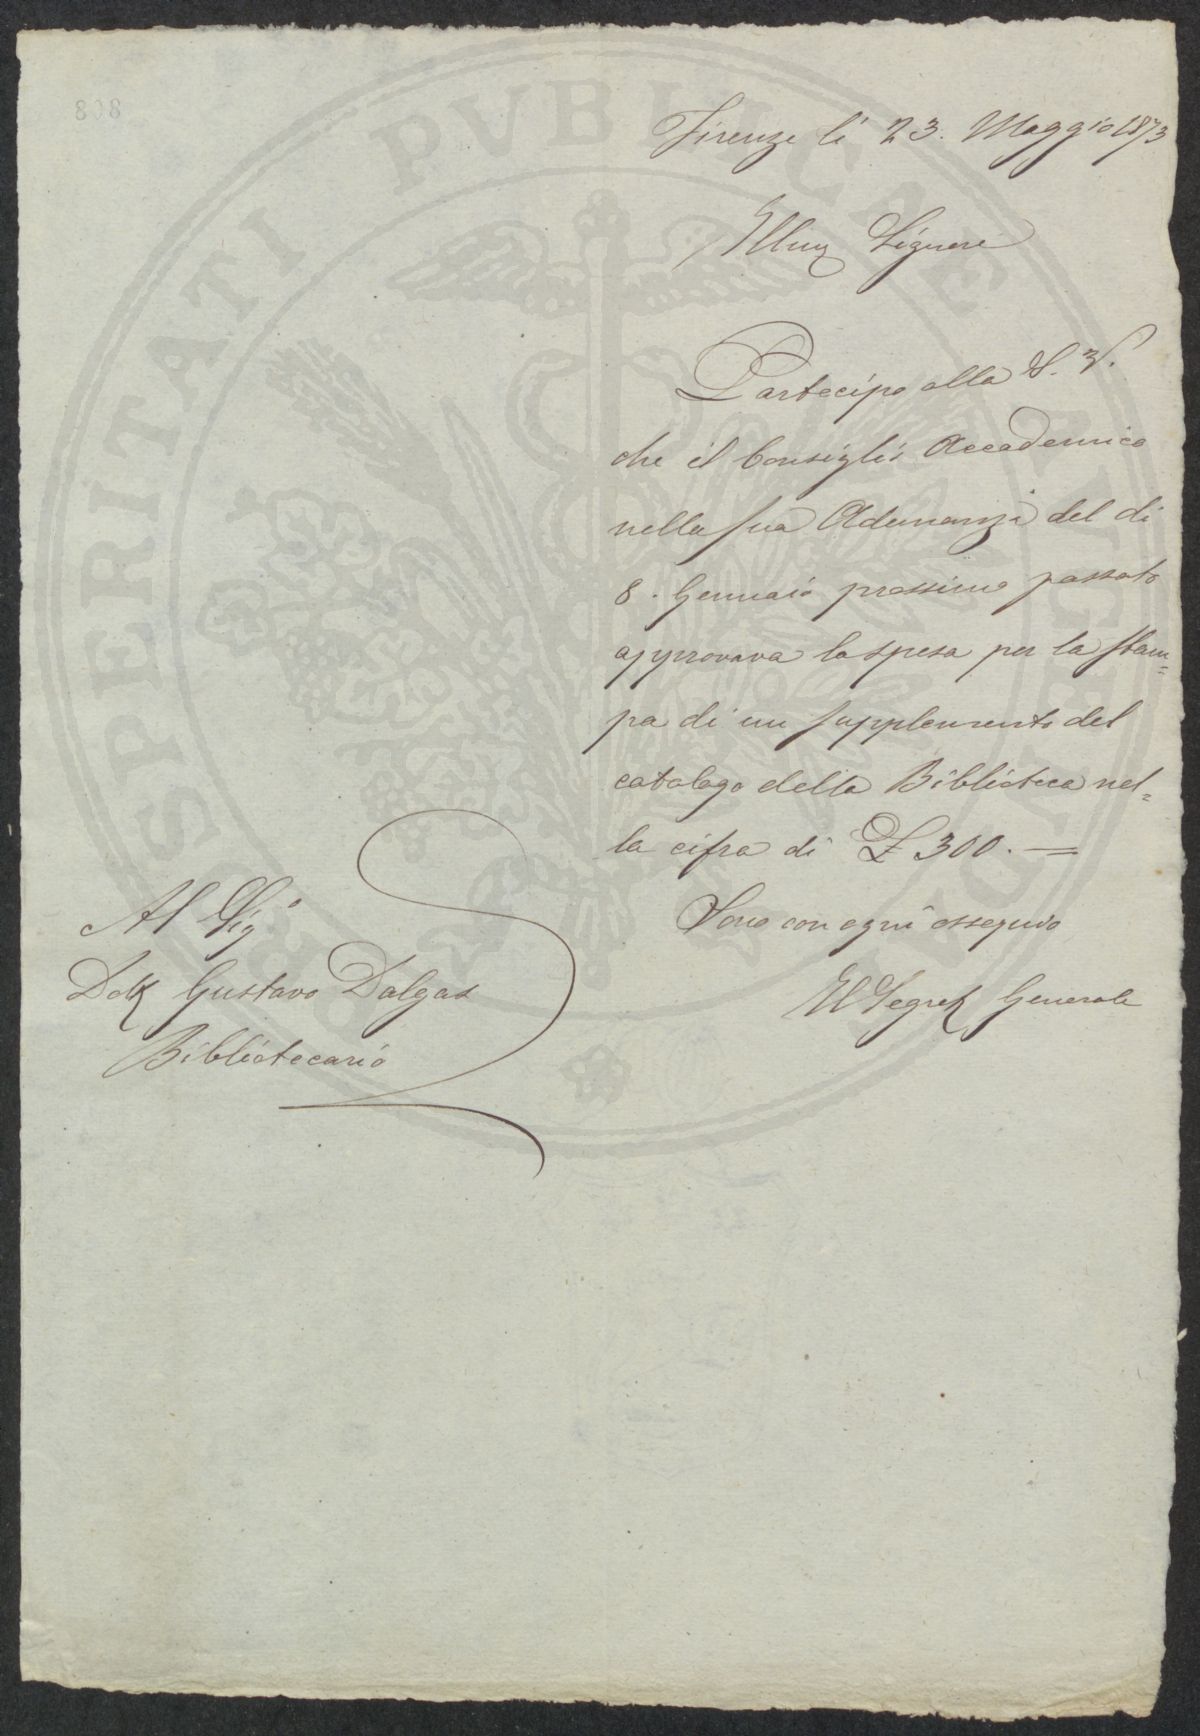 808
Firenze lì 23. Maggio 1873
Illmo Signore
Partecipo alla S. V.
che il Consiglio Accademico
nella sua Adunanza del dì
8. Gennaio prossimo passato
approvava la spesa per la stam=
pa di un supplemento del
catalogo della Biblioteca nel=
la cifra di £ 300. =
Sono con ogni ossequio
Il Segret Generale
Al Sigo
Dott Gustavo Dalgas
Bibliotecario
PROSPERITATI PVBLICAE AVGENDAE